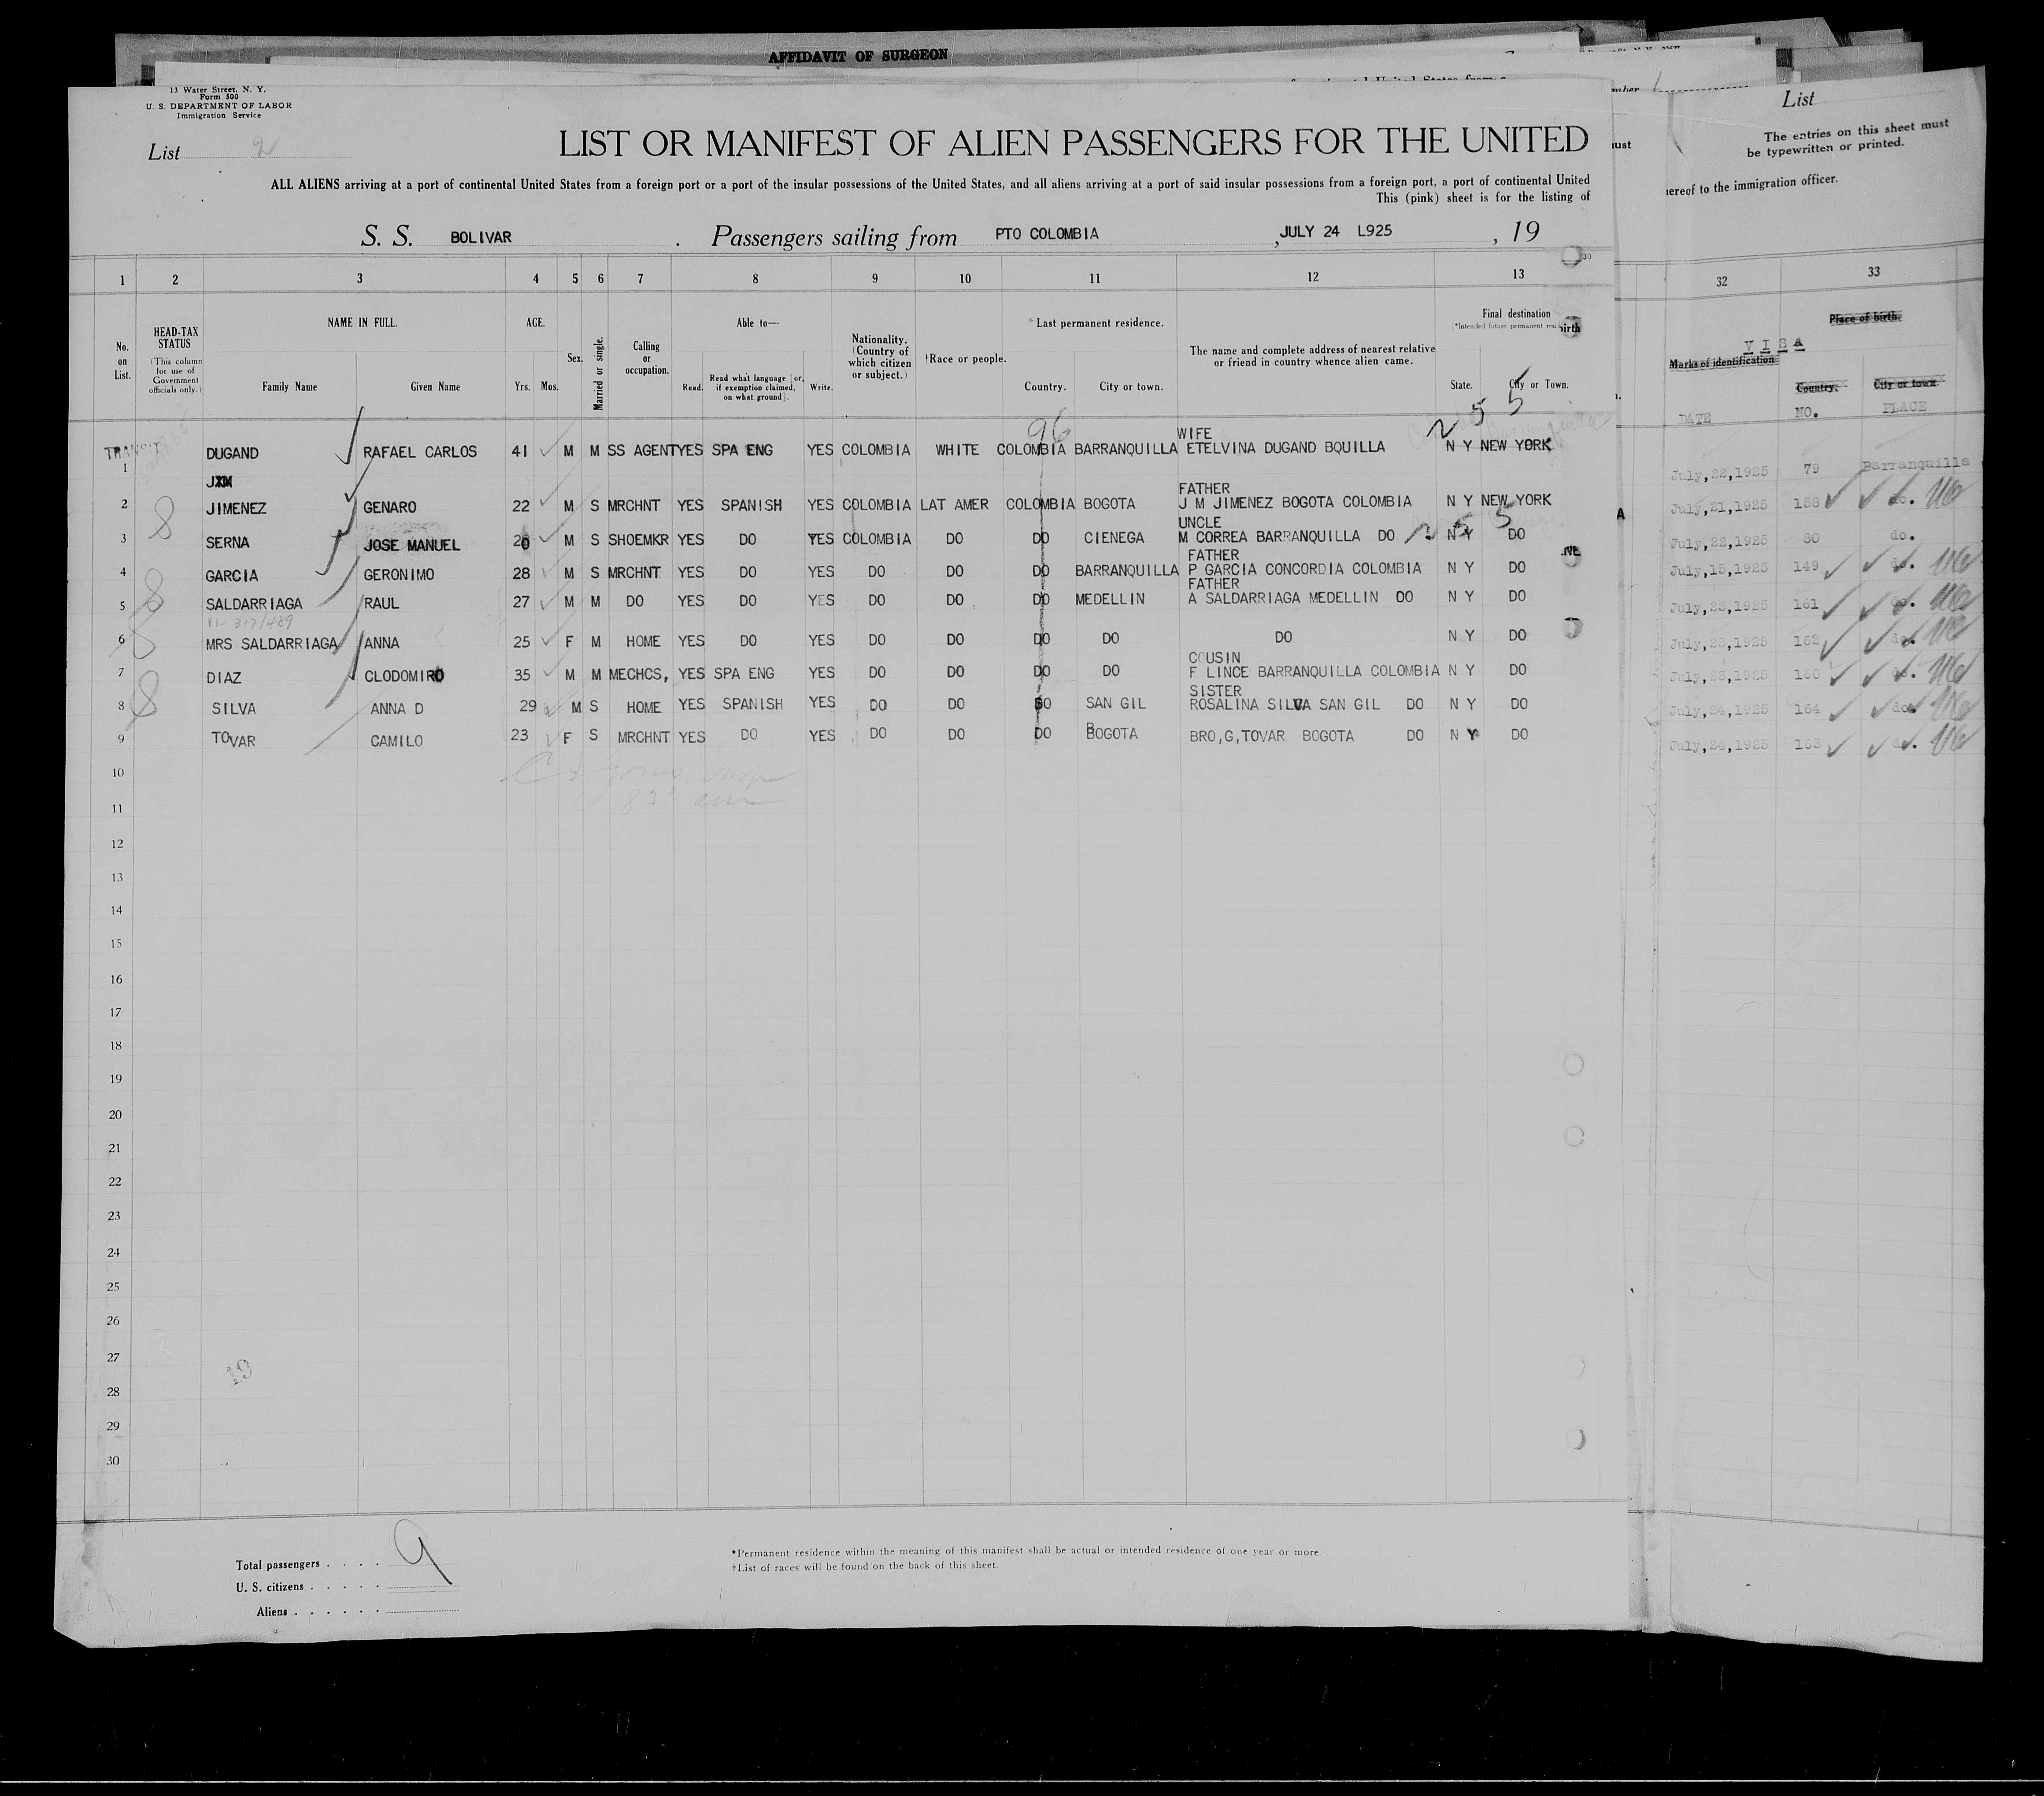 AFFIDAVIT OF SURGEON
13 Water Street, N. Y.
Form 500
U. S. DEPARTMENT OF LABOR
Immigration Service
List 2
LIST OR MANIFEST OF ALIEN PASSENGERS FOR THE UNITED
ALL ALIENS arriving at a port of continental United States from a foreign port or a port of the insular possessions of the United States, and all aliens arriving at a port of said insular possessions from a foreign port, a port of continental United
This (pink) sheet is for the listing of
S. S. BOLIVAR . Passengers sailing from PTO COLOMBIA , JULY 24 L925 , 19
List
The entries on this sheet must
be typewritten or printed.
hereof to the immigration officer.
1 2 3 4 5 6 7 8 9 10 11 12 13
32 33
No. on List.
HEAD-TAX STATUS
(This column for use of Government officials only.)
NAME IN FULL.
Family Name Given Name
AGE.
Yrs. Mos.
Sex.
Married or single.
Calling or occupation.
Able to—
Read. Read what language [or, if exemption claimed, on what ground]. Write.
Nationality. (Country of which citizen or subject.)
†Race or people.
*Last permanent residence.
Country. City or town.
The name and complete address of nearest relative or friend in country whence alien came.
Final destination
State. City or Town.
Place of birth.
V I S A
Marks of identification
Country. City or town.
DATE NO. PLACE
96
2 5 5
TRANSIT
WIFE
1 DUGAND RAFAEL CARLOS 41 M M SS AGENT YES SPA ENG YES COLOMBIA WHITE COLOMBIA BARRANQUILLA ETELVINA DUGAND BQUILLA N Y NEW YORK July,22,1925 79 Barranquilla
JXM
FATHER
2 JIMENEZ GENARO 22 M S MRCHNT YES SPANISH YES COLOMBIA LAT AMER COLOMBIA BOGOTA J M JIMENEZ BOGOTA COLOMBIA N Y NEW YORK July,21,1925 158 do.
UNCLE
3 SERNA JOSE MANUEL 20 M S SHOEMKR YES DO YES COLOMBIA DO DO CIENEGA M CORREA BARRANQUILLA DO N Y DO July,22,1925 80 do.
FATHER
4 GARCIA GERONIMO 28 M S MRCHNT YES DO YES DO DO DO BARRANQUILLA P GARCIA CONCORDIA COLOMBIA N Y DO July,15,1925 149 do.
FATHER
5 SALDARRIAGA RAUL 27 M M DO YES DO YES DO DO DO MEDELLIN A SALDARRIAGA MEDELLIN DO N Y DO July,23,1925 161 do.
317/489
6 MRS SALDARRIAGA ANNA 25 F M HOME YES DO YES DO DO DO DO DO N Y DO July,23,1925 162 do.
COUSIN
7 DIAZ CLODOMIRO 35 M M MECHCS, YES SPA ENG YES DO DO DO DO F LINCE BARRANQUILLA COLOMBIA N Y DO July,23,1925 160 do.
SISTER
8 SILVA ANNA D 29 M S HOME YES SPANISH YES DO DO DO SAN GIL ROSALINA SILVA SAN GIL DO N Y DO July,24,1925 164 do.
9 TOVAR CAMILO 23 F S MRCHNT YES DO YES DO DO DO BOGOTA BRO,G,TOVAR BOGOTA DO N Y DO July,24,1925 163 do.
10
11
12
13
14
15
16
17
18
19
20
21
22
23
24
25
26
27
19
28
29
30
Total passengers . . . . 9
U. S. citizens . . . . .
Aliens . . . . . .
*Permanent residence within the meaning of this manifest shall be actual or intended residence of one year or more.
†List of races will be found on the back of this sheet.